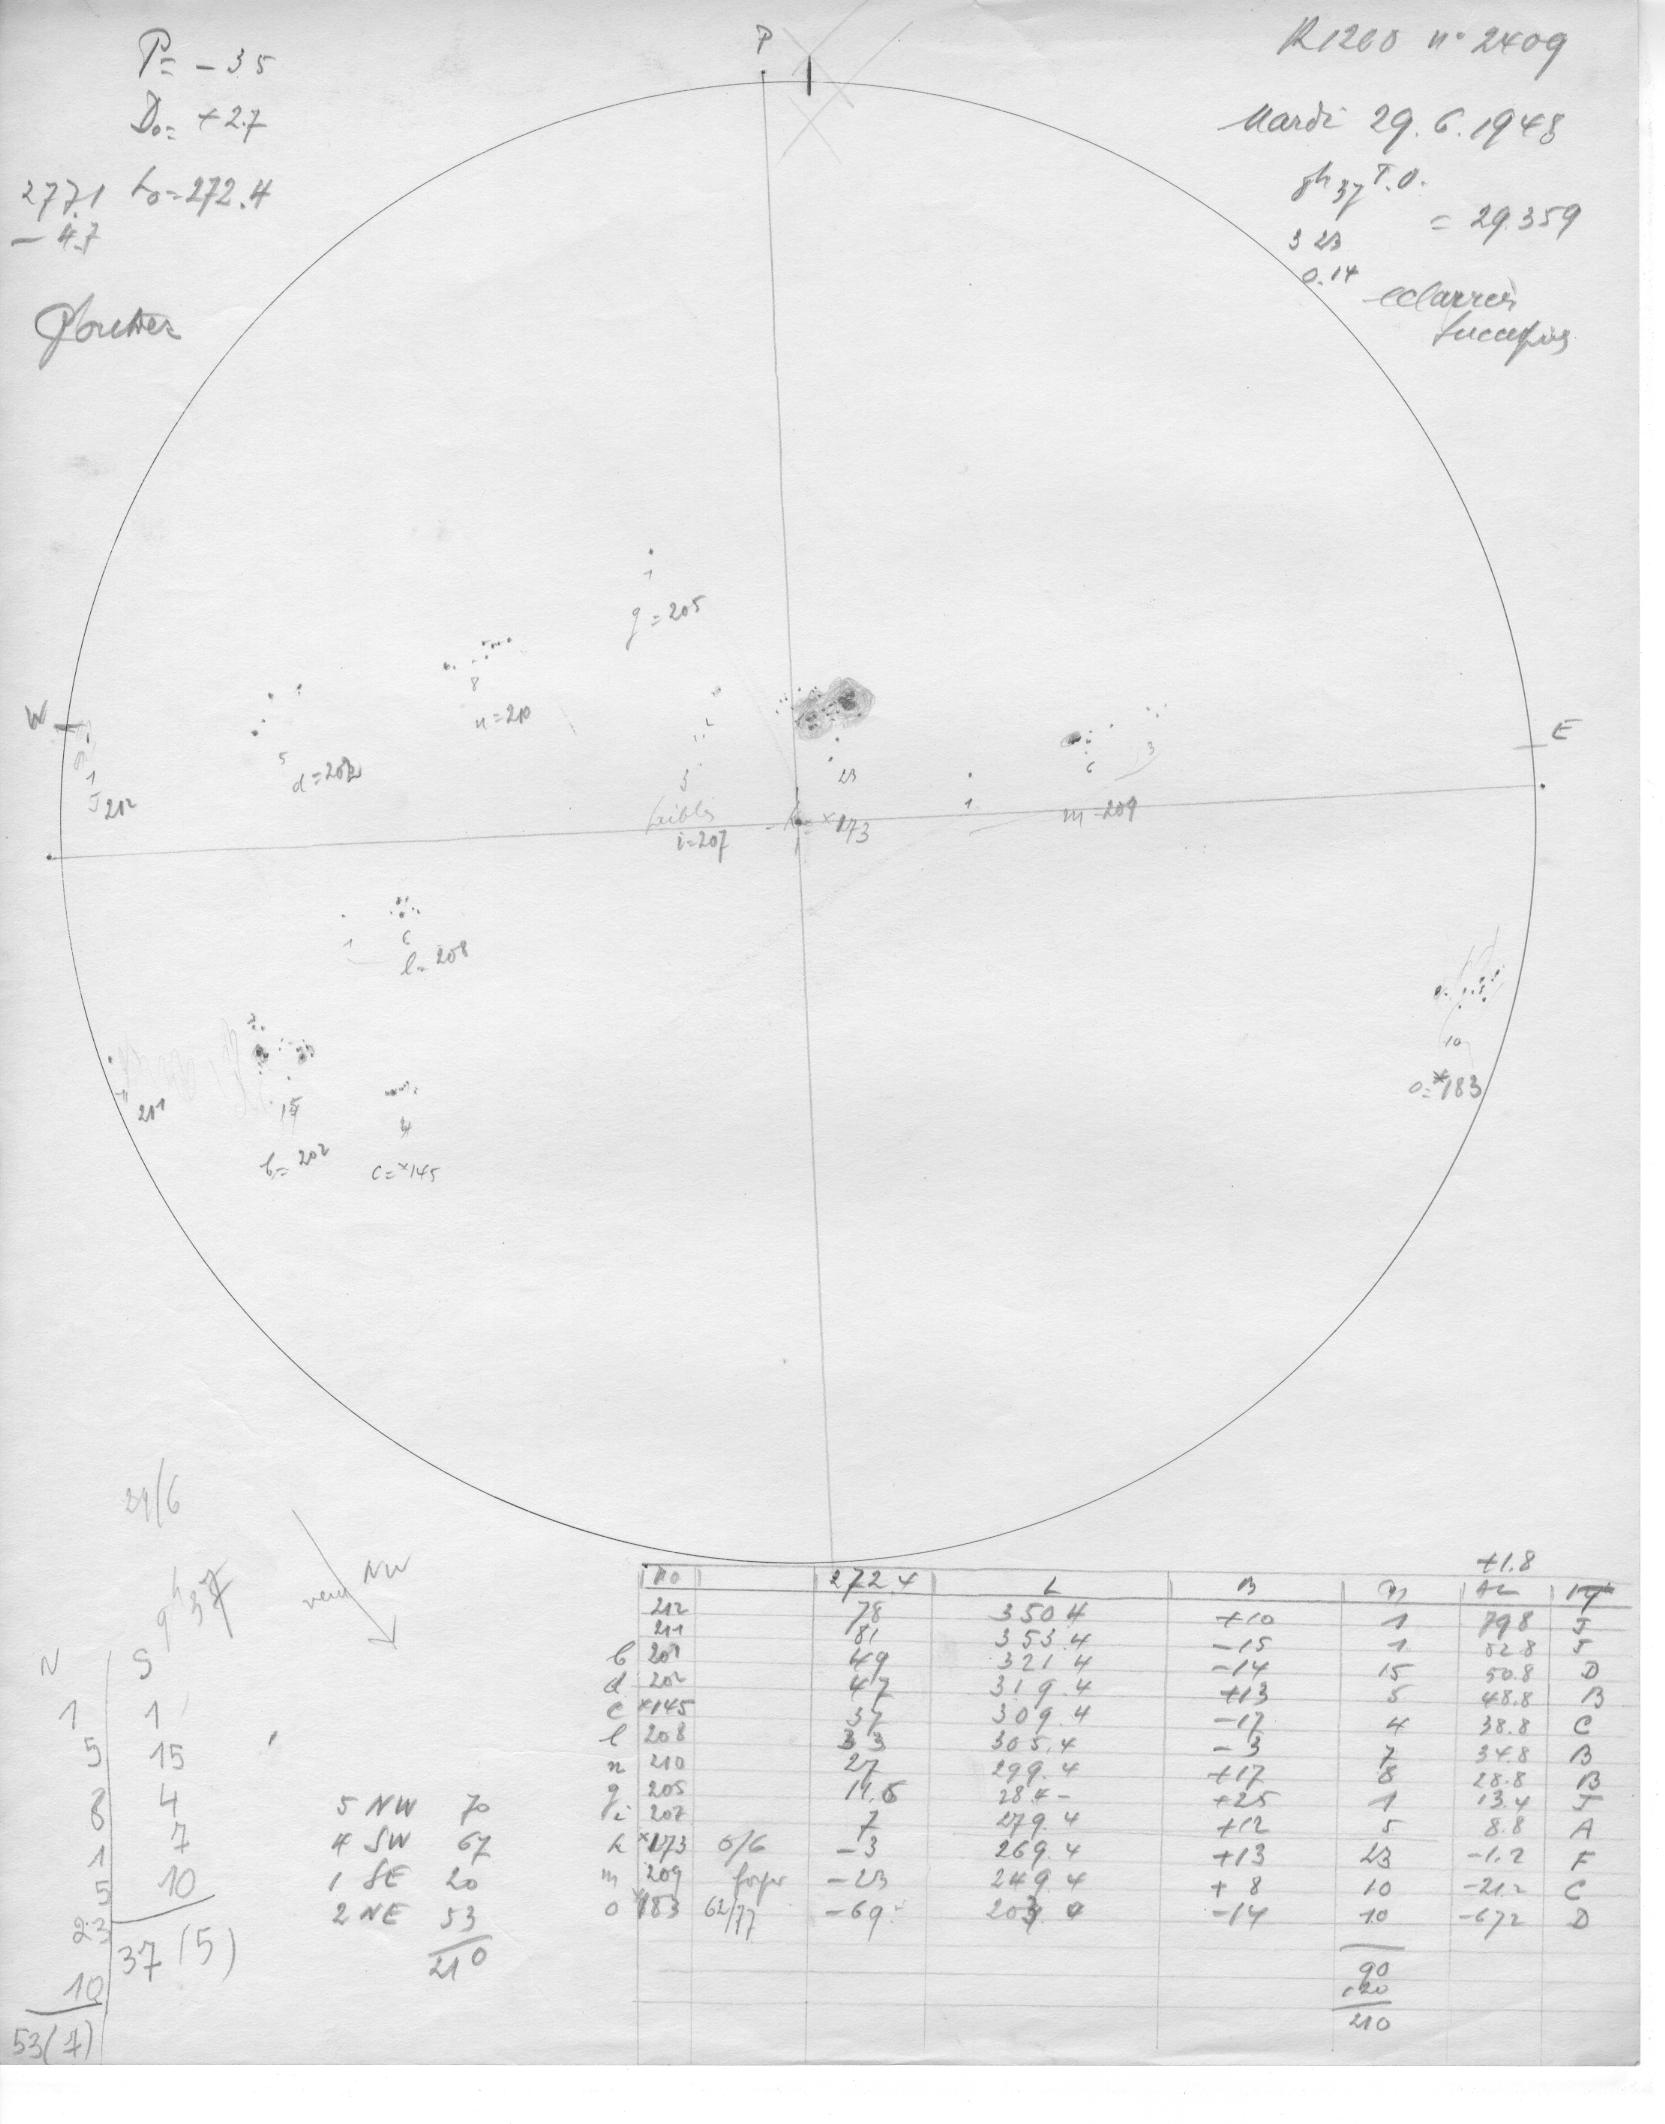 P= -35
D₀= +2.7
277.1 L₀=272.4
- 4.7
P
R1260 n° 2409
Mardi 29.6.1948
8h37 T.O.
= 29.359
3 23
0.14
W
E
1
g=205
8
n=210
5
d=202
1
J 212
3
faibles
i=207
23
×173
1
6
3
m=209
1
6
l=208
211
15
b=202
4
c=×145
10
o=×183
29/6
9h37
vent NW
N S
1 1
5 15
8 4
1 7
5 10
23 37 (5)
10
53(7)
5 NW 70
4 SW 67
1 SE 20
2 NE 53
210
+1.8
no 272.4 L B
212 78 350.4 +10 1 79.8 J
211 81 353.4 -15 1 82.8 J
b 201 49 321.4 -14 15 50.8 D
d 202 47 319.4 +13 5 48.8 B
c ×145 37 309.4 -17 4 38.8 C
l 208 33 305.4 -3 7 34.8 B
n 210 27 299.4 +17 8 28.8 B
g 205 11.6 284- +25 1 13.4 J
i 207 7 279.4 +12 5 8.8 A
k ×173 6/6 -3 269.4 +13 23 -1.2 F
m 209 -23 249.4 +8 10 -21.2 C
o ×183 62/77 -69 -14 10 -67.2 D
90
120
210